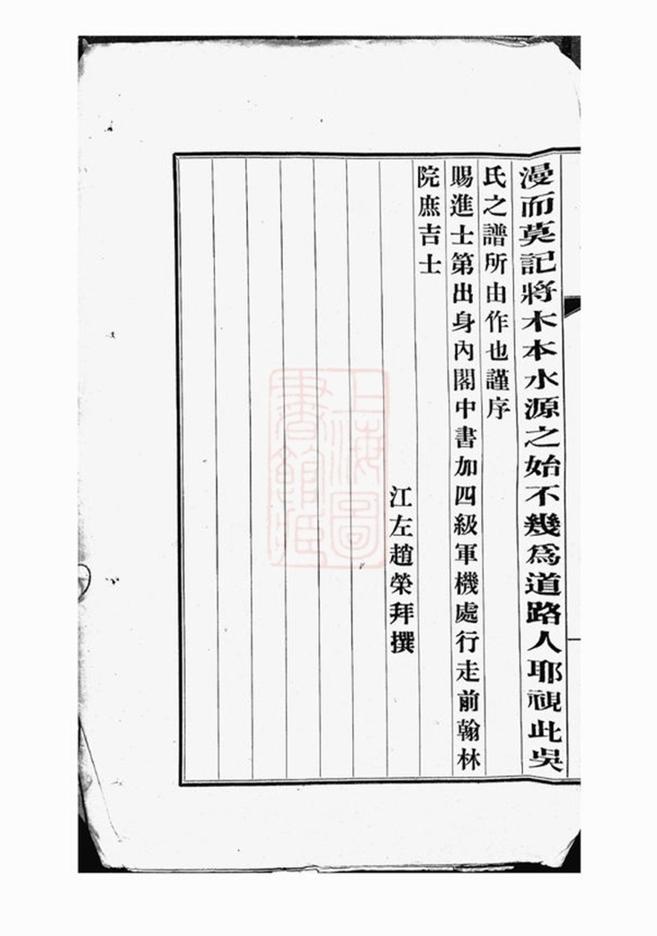 漫而莫記將木本水源之始不幾爲道路人耶視此吳
氏之譜所由作也謹序
賜進士第出身內閣中書加四級軍機處行走前翰林
院庶吉士
江左趙榮拜撰
上海圖
書館藏